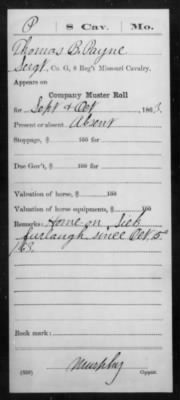 P 8 Cav. Mo.
Thomas B. Payne
Sergt, Co. G, 8 Reg't Missouri Cavalry.
Appears on
Company Muster Roll
for Sept & Oct, 1863.
Present or absent Absent
Stoppage, $ 100 for
Due Gov't, $ 100 for
Valuation of horse, $ 100
Valuation of horse equipments, $ 100
Remarks: Home on Sick
furlough since Oct. 15th
/63.
Book mark:
Murphy
(358) Copyist.